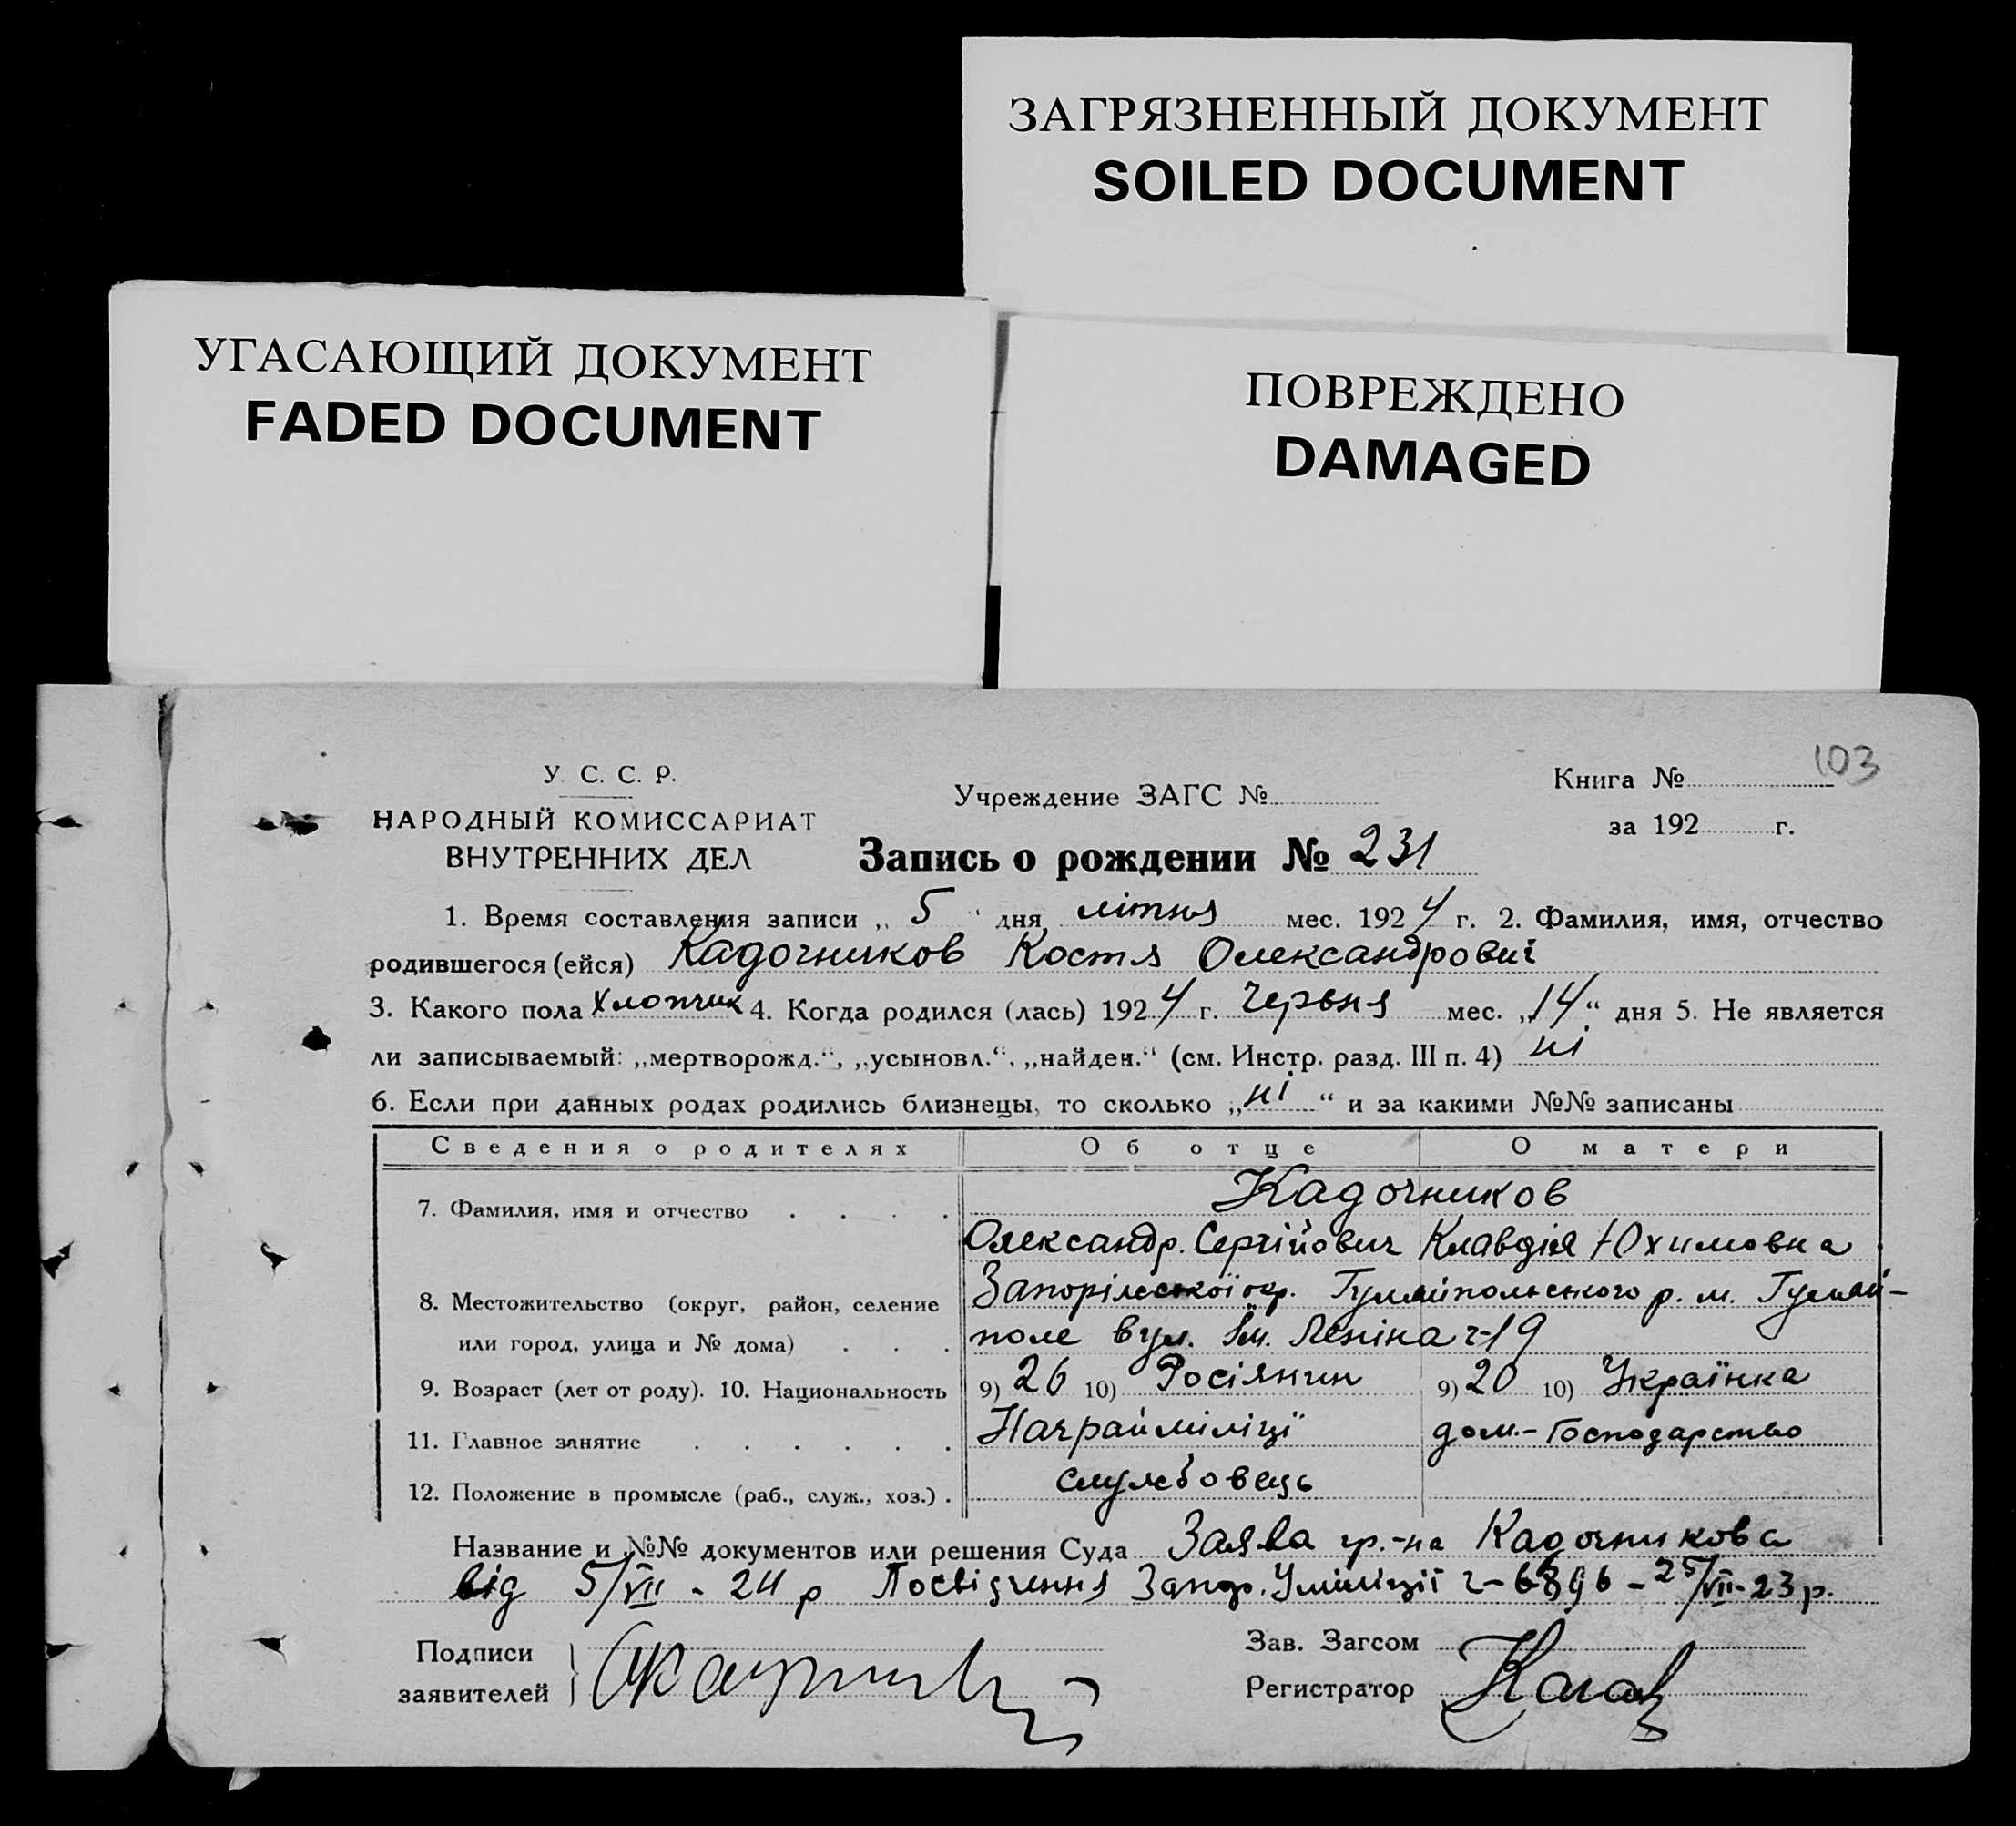 ЗАГРЯЗНЕННЫЙ ДОКУМЕНТ
SOILED DOCUMENT
УГАСАЮЩИЙ ДОКУМЕНТ
FADED DOCUMENT
ПОВРЕЖДЕНО
DAMAGED
103
У. С. С. Р.
НАРОДНЫЙ КОМИССАРИАТ
ВНУТРЕННИХ ДЕЛ
Учреждение ЗАГС №
Книга №
за 192 г.
Запись о рождении № 231
1. Время составления записи „ 5 “ дня літня мес. 1924 г. 2. Фамилия, имя, отчество
родившегося (ейся) Кадочников Костя Олександрович
3. Какого пола хлопчик 4. Когда родился (лась) 1924 г. червня мес. „14“ дня 5. Не является
ли записываемый: „мертворожд.“, „усыновл.“, „найден.“ (см. Инстр. разд. III п. 4) ні
6. Если при данных родах родились близнецы, то сколько „ні“ и за какими №№ записаны
Сведения о родителях Об отце О матери
7. Фамилия, имя и отчество . . . . Кадочников
Олександр. Сергійович Клавдія Юхимовна
8. Местожительство (округ, район, селение Запоріжської окр. Гуляйпольського р. м. Гуляй-
или город, улица и № дома) . . . поле вул. Ім. Леніна ч-19
9. Возраст (лет от роду). 10. Национальность 9) 26 10) Росіянин 9) 20 10) Українка
11. Главное занятие . . . . . . Начрайміліції дом.-Господарство
12. Положение в промысле (раб., служ., хоз.) . службовець
Название и №№ документов или решения Суда Заява гр.-на Кадочникова
від 5/VII - 24 р Посвідчення Запор. Уміліції ч-6896 - 25/VII-23 р.
Подписи
заявителей
Зав. Загсом
Регистратор